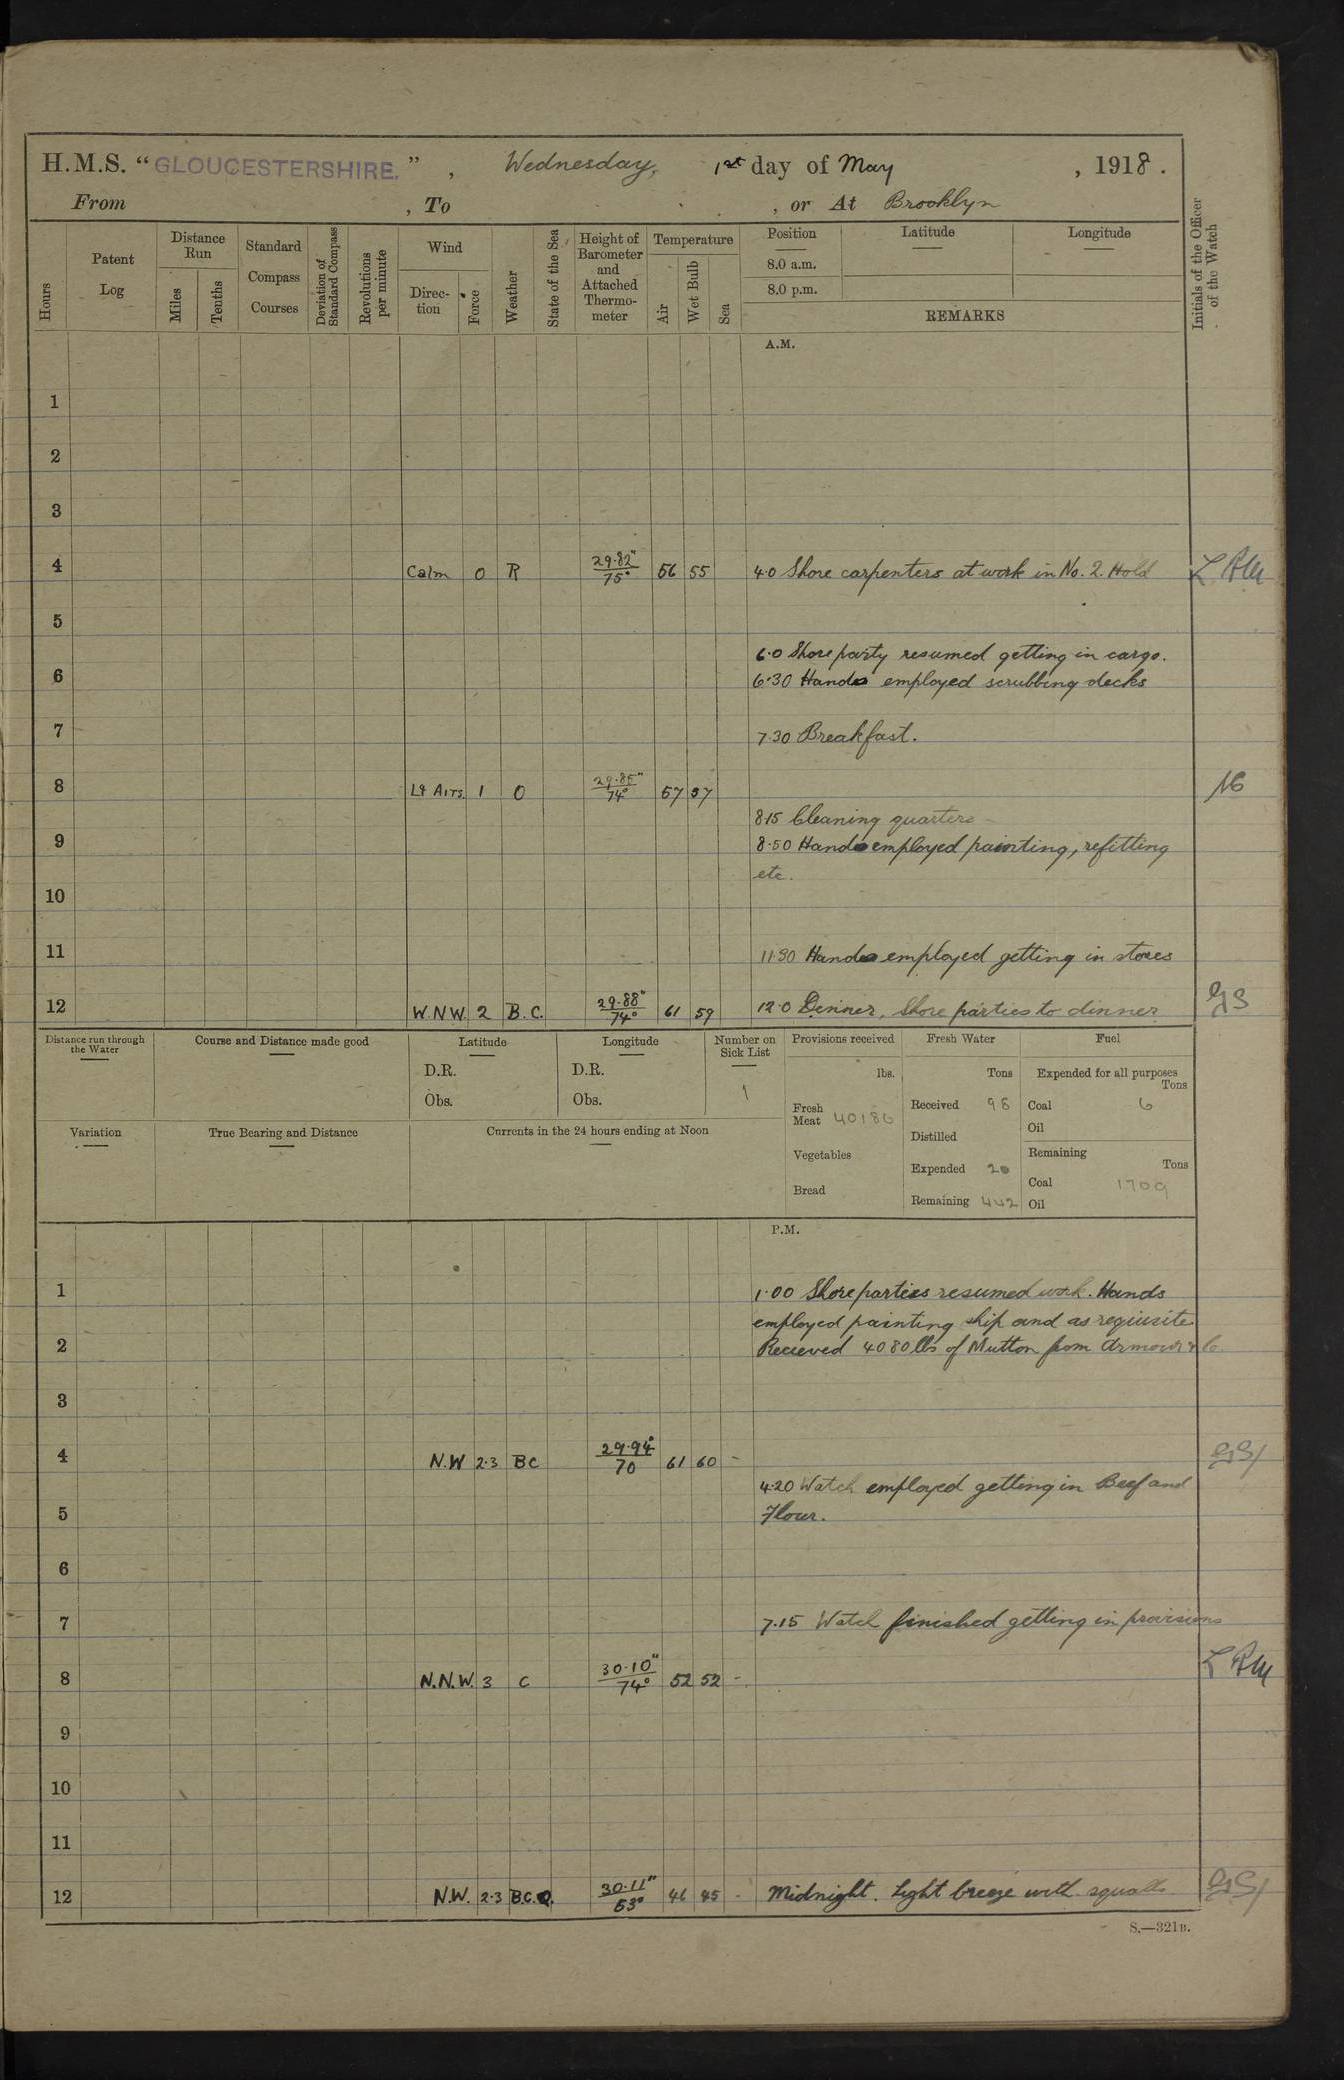 H.M.S. “GLOUCESTERSHIRE.”, Wednesday, 1st day of May, 1918.
From , To , or At Brooklyn
Hours
Patent Log
Distance Run
Miles
Tenths
Standard Compass Courses
Deviation of Standard Compass
Revolutions per minute
Wind
Direc-tion
Force
Weather
State of the Sea
Height of Barometer and Attached Thermo-meter
Temperature
Air
Wet Bulb
Sea
Position
8.0 a.m.
8.0 p.m.
Latitude
Longitude
REMARKS
Initials of the Officer of the Watch
A.M.
1
2
3
4 Calm 0 R 29.82" 75° 56 55 4.0 Shore carpenters at work in No. 2. Hold
5
6.0 Shore party resumed getting in cargo.
6 6.30 Hands employed scrubbing decks
7 7.30 Breakfast.
8 Lt Airs. 1 O 29.85" 74° 57 57
8.15 Cleaning quarters
9 8.50 Hands employed painting, refitting
etc.
10
11 11.30 Hands employed getting in stores
12 W.NW. 2 B.C. 29.88" 74° 61 59 12.0 Dinner, Shore parties to dinner GS
Distance run through the Water
Course and Distance made good
Latitude
D.R.
Obs.
Longitude
D.R.
Obs.
Number on Sick List
1
Variation
True Bearing and Distance
Currents in the 24 hours ending at Noon
Provisions received
lbs.
Fresh Meat 40186
Vegetables
Bread
Fresh Water
Tons
Received 98
Distilled
Expended 20
Remaining 442
Fuel
Expended for all purposes
Tons
Coal 6
Oil
Remaining
Tons
Coal 1709
Oil
P.M.
1 1.00 Shore parties resumed work. Hands
employed painting ship and as requisite
2 Recieved 4080 lbs of Mutton from Armour & Co
3
4 N.W 2.3 BC 29.94" 70 61 60 - GS
4.20 Watch employed getting in Beef and
5 Flour.
6
7 7.15 Watch finished getting in provisions
8 N.N.W. 3 C 30.10" 74° 52 52 -
9
10
11
12 N.W. 2.3 B.C.Q. 30.11" 53° 46 45 - Midnight. Light breeze with squalls GS
S.—321B.